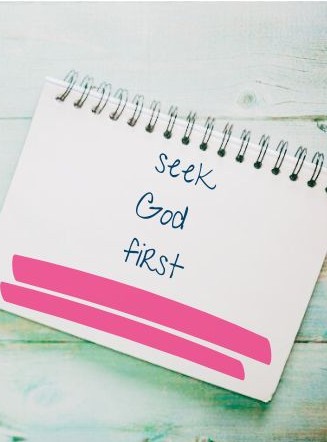 seek
God
first